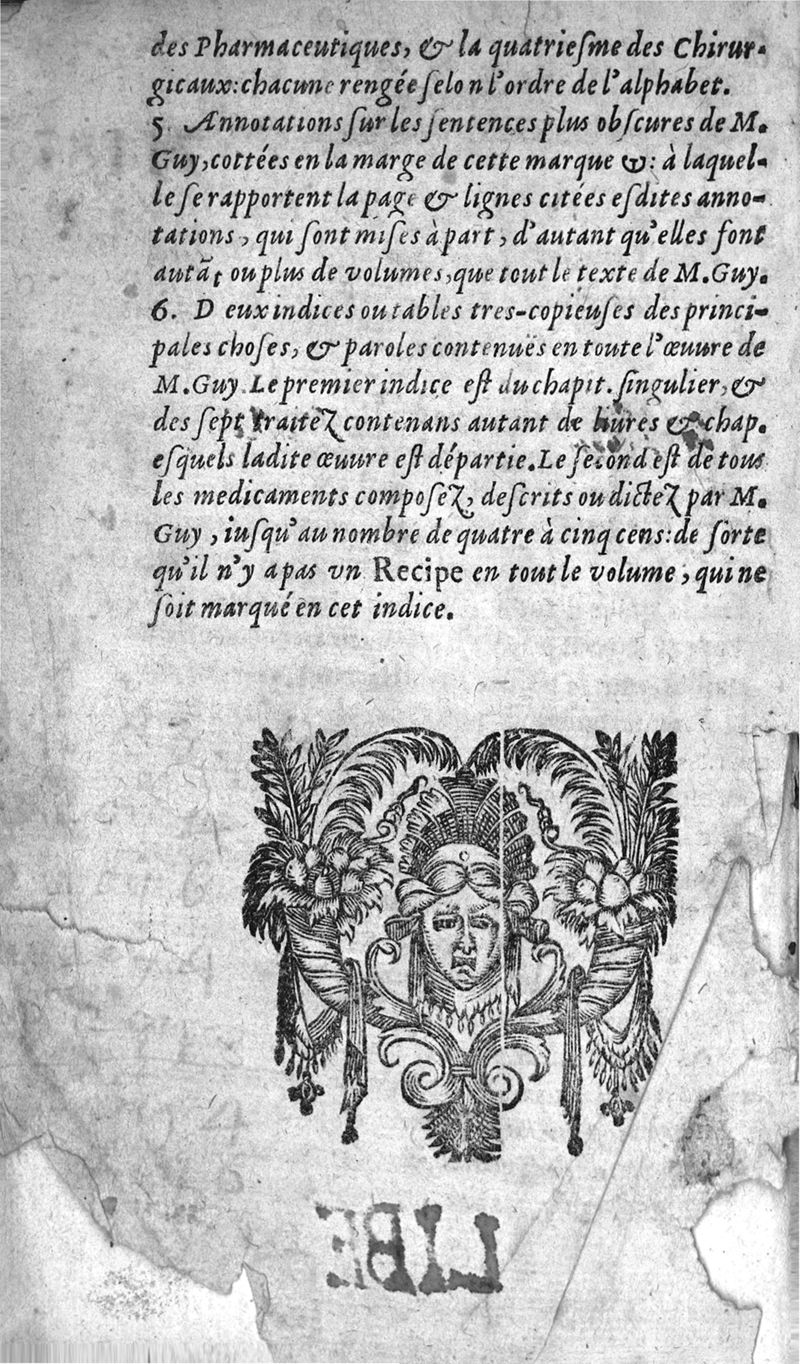 des Pharmaceutiques, & la quatrieſme des Chirur-
gicaux: chacune rengée ſelon l'ordre de l'alphabet.
5 Annotations ſur les ſentences plus obſcures de M.
Guy, cottées en la marge de cette marque ꙍ: à laquel-
le ſe rapportent la page & lignes citées eſdites anno-
tations, qui ſont miſes à part, d'autant qu'elles font
autāt ou plus de volumes, que tout le texte de M. Guy.
6. Deux indices ou tables tres-copieuſes des princi-
pales choſes, & paroles contenuës en toute l'œuure de
M. Guy. Le premier indice eſt du chapit. ſingulier, &
des ſept traitez contenans autant de liures & chap.
eſquels ladite œuure eſt départie. Le ſecond eſt de tous
les medicaments compoſez, deſcrits ou dictez par M.
Guy, iuſqu'au nombre de quatre à cinq cens: de ſorte
qu'il n'y a pas vn Recipe en tout le volume, qui ne
ſoit marqué en cet indice.
LIBE